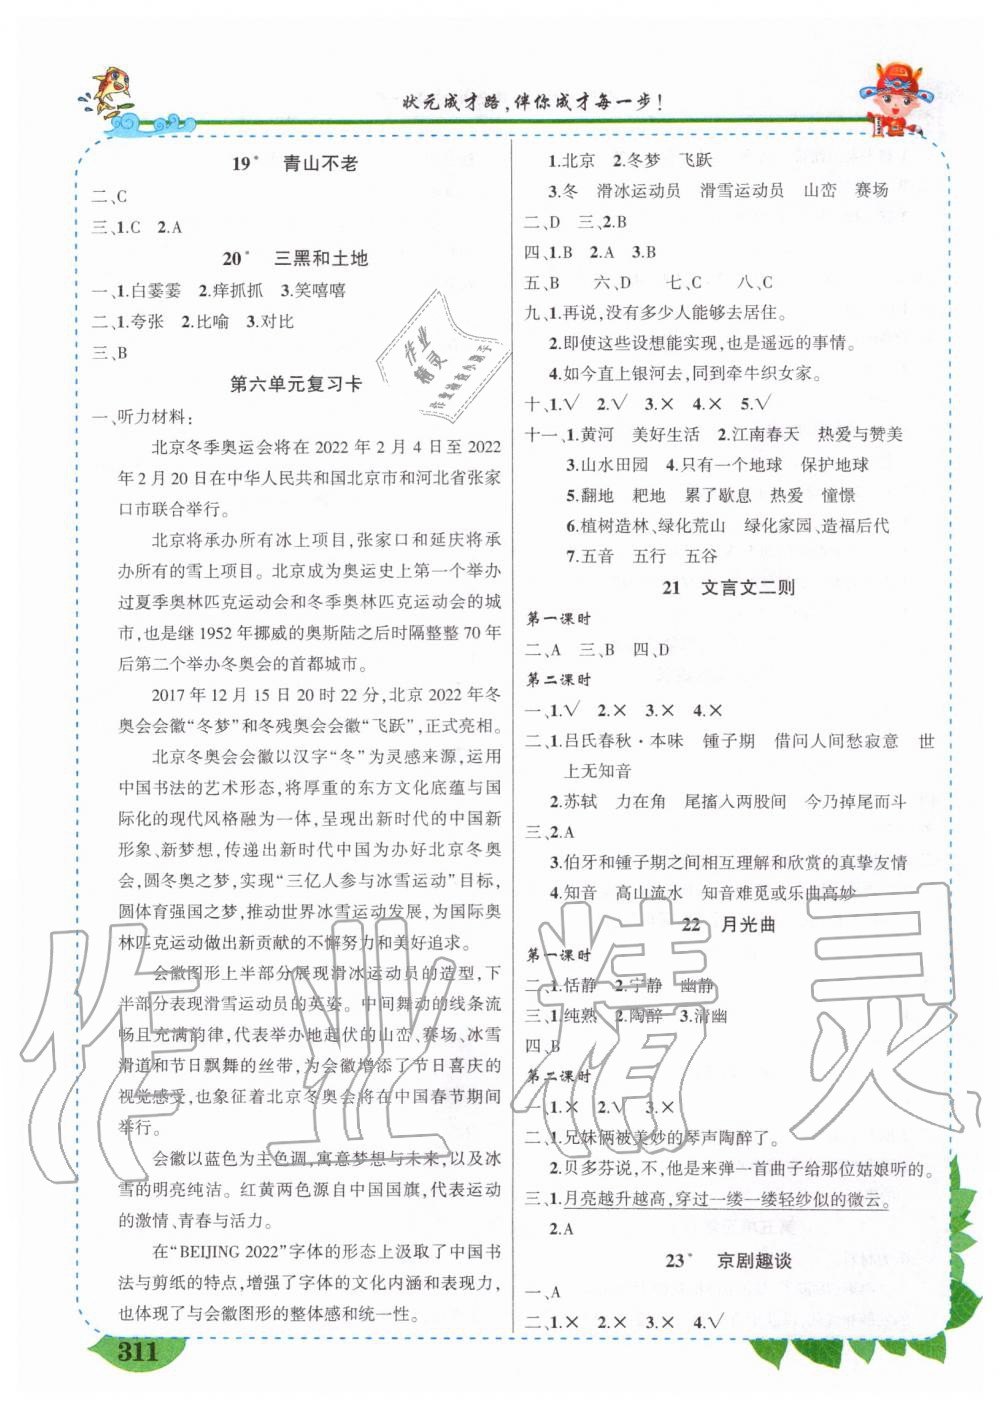 状元成才路,伴你成才每一步!
19* 青山不老
二、C
三、1.C 2.A
20* 三黑和土地
一、1.白霎霎 2.痒抓抓 3.笑嘻嘻
二、1.夸张 2.比喻 3.对比
三、B
第六单元复习卡
一、听力材料:
北京冬季奥运会将在 2022 年 2 月 4 日至 2022
年 2 月 20 日在中华人民共和国北京市和河北省张家
口市联合举行。
北京将承办所有冰上项目,张家口和延庆将承办
所有的雪上项目。北京成为奥运史上第一个举办
过夏季奥林匹克运动会和冬季奥林匹克运动会的城
市,也是继 1952 年挪威的奥斯陆之后时隔整整 70 年
后第二个举办冬奥会的首都城市。
2017 年 12 月 15 日 20 时 22 分,北京 2022 年冬
奥会会徽“冬梦”和冬残奥会会徽“飞跃”,正式亮相。
北京冬奥会会徽以汉字“冬”为灵感来源,运用
中国书法的艺术形态,将厚重的东方文化底蕴与国
际化的现代风格融为一体,呈现出新时代的中国新
形象、新梦想,传递出新时代中国为办好北京冬奥
会,圆冬奥之梦,实现“三亿人参与冰雪运动”目标,
圆体育强国之梦,推动世界冰雪运动发展,为国际奥
林匹克运动做出新贡献的不懈努力和美好追求。
会徽图形上半部分展现滑冰运动员的造型,下
半部分表现滑雪运动员的英姿。中间舞动的线条流
畅且充满韵律,代表举办地起伏的山峦、赛场、冰雪
滑道和节日飘舞的丝带,为会徽增添了节日喜庆的
视觉感受,也象征着北京冬奥会将在中国春节期间
举行。
会徽以蓝色为主色调,寓意梦想与未来,以及冰
雪的明亮纯洁。红黄两色源自中国国旗,代表运动
的激情、青春与活力。
在“BEIJING 2022”字体的形态上汲取了中国书
法与剪纸的特点,增强了字体的文化内涵和表现力,
也体现了与会徽图形的整体感和统一性。
311
1.北京 2.冬梦 飞跃
3.冬 滑冰运动员 滑雪运动员 山峦 赛场
二、D 三、2.B
四、1.B 2.A 3.B
五、B 六、D 七、C 八、C
九、1.再说,没有多少人能够去居住。
2.即使这些设想能实现,也是遥远的事情。
4.如今直上银河去,同到牵牛织女家。
十、1.√ 2.√ 3.× 4.× 5.√
十一、1.黄河 美好生活 2.江南春天 热爱与赞美
3.山水田园 4.只有一个地球 保护地球
5.翻地 耙地 累了歇息 热爱 憧憬
6.植树造林、绿化荒山 绿化家园、造福后代
7.五音 五行 五谷
21 文言文二则
第一课时
二、A 三、B 四、D
第二课时
一、1.√ 2.× 3.× 4.×
二、1.吕氏春秋·本味 锺子期 借问人间愁寂意 世
上无知音
2.苏轼 力在角 尾搐入两股间 今乃掉尾而斗
三、2.A
3.伯牙和锺子期之间相互理解和欣赏的真挚友情
4.知音 高山流水 知音难觅或乐曲高妙
22 月光曲
第一课时
二、1.恬静 2.宁静 幽静
三、1.纯熟 2.陶醉 3.清幽
四、B
第二课时
一、1.× 2.√ 3.×
二、1.兄妹俩被美妙的琴声陶醉了。
2.贝多芬说,不,他是来弹一首曲子给那位姑娘听的。
三、1.月亮越升越高,穿过一缕一缕轻纱似的微云。
2.A
23* 京剧趣谈
一、A
二、1.× 2.× 3.× 4.√
作业精灵
作业
精灵